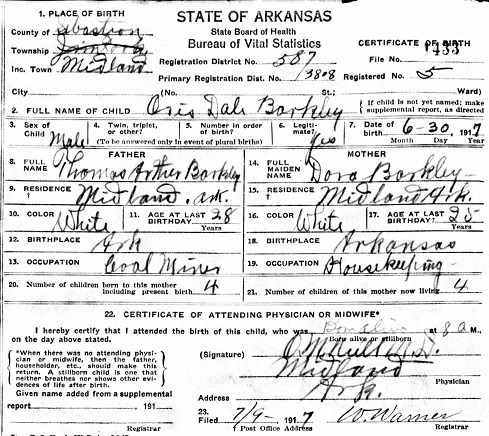 1. PLACE OF BIRTH
STATE OF ARKANSAS
State Board of Health
Bureau of Vital Statistics
CERTIFICATE OF BIRTH
County of Sebastian
Township
Inc. Town Midland
Registration District No. 587
File No. 1433
Primary Registration Dist. No. 3808
Registered No. 5
City (No. St.; Ward)
2. FULL NAME OF CHILD Oris Dale Barkley
If child is not yet named; make supplemental report, as directed
3. Sex of Child Male
4. Twin, triplet, or other?
5. Number in order of birth?
(To be answered only in event of plural births)
6. Legitimate? Yes
7. Date of birth 6-30, 1917
Month Day Year
FATHER
8. FULL NAME Thomas Arthur Barkley
9. RESIDENCE Midland. Ark.
10. COLOR White
11. AGE AT LAST BIRTHDAY? 28 Years
12. BIRTHPLACE Ark
13. OCCUPATION Coal Miner
MOTHER
14. FULL MAIDEN NAME Dora Barkley
15. RESIDENCE Midland Ark.
16. COLOR White
17. AGE AT LAST BIRTHDAY? 25 Years
18. BIRTHPLACE Arkansas
19. OCCUPATION Housekeeping
20. Number of children born to this mother including present birth 4
21. Number of children of this mother now living 4
22. CERTIFICATE OF ATTENDING PHYSICIAN OR MIDWIFE*
I hereby certify that I attended the birth of this child, who was Born alive at 8 a M.,
on the day above stated.
Born alive or stillborn
*When there was no attending physician or midwife, then the father, householder, etc., should make this return. A stillborn child is one that neither breathes nor shows other evidences of life after birth.
(Signature)
Midland
Physician
Address Ark.
Given name added from a supplemental
report 191
Registrar
23. Filed 7/9- 1917 W. Warner
† Post Office Address Registrar